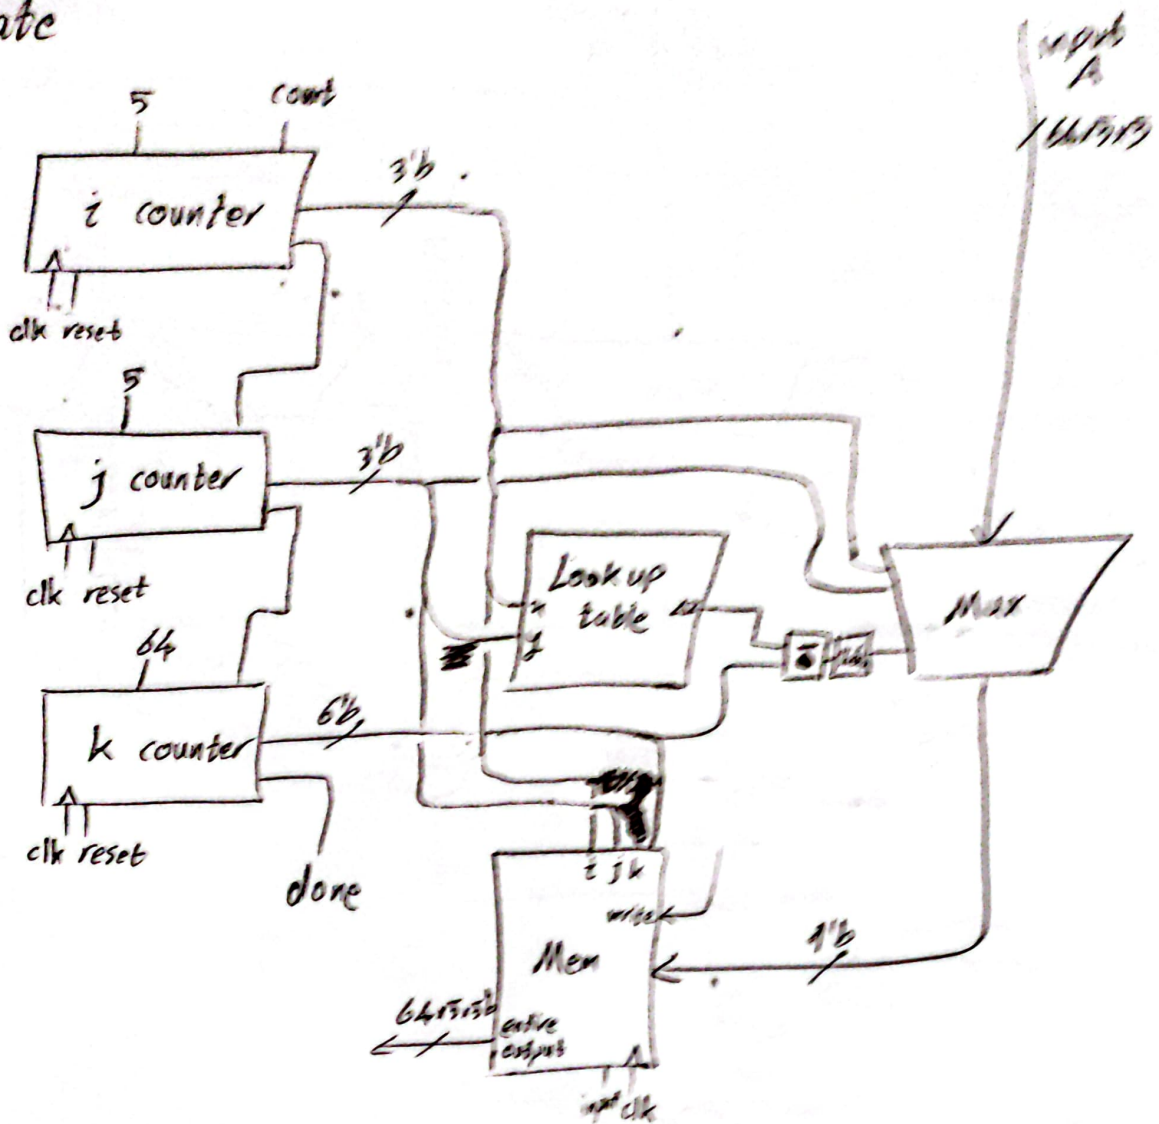 ate
input
A
5
count
64x5x5
i counter
3'b
clk reset
5
j counter
3'b
clk reset
Lookup
table
x
y
Mux
64
k counter
6'b
clk reset
done
i j k
write
Mem
1'b
64x5x5'b
entire
output
input clk